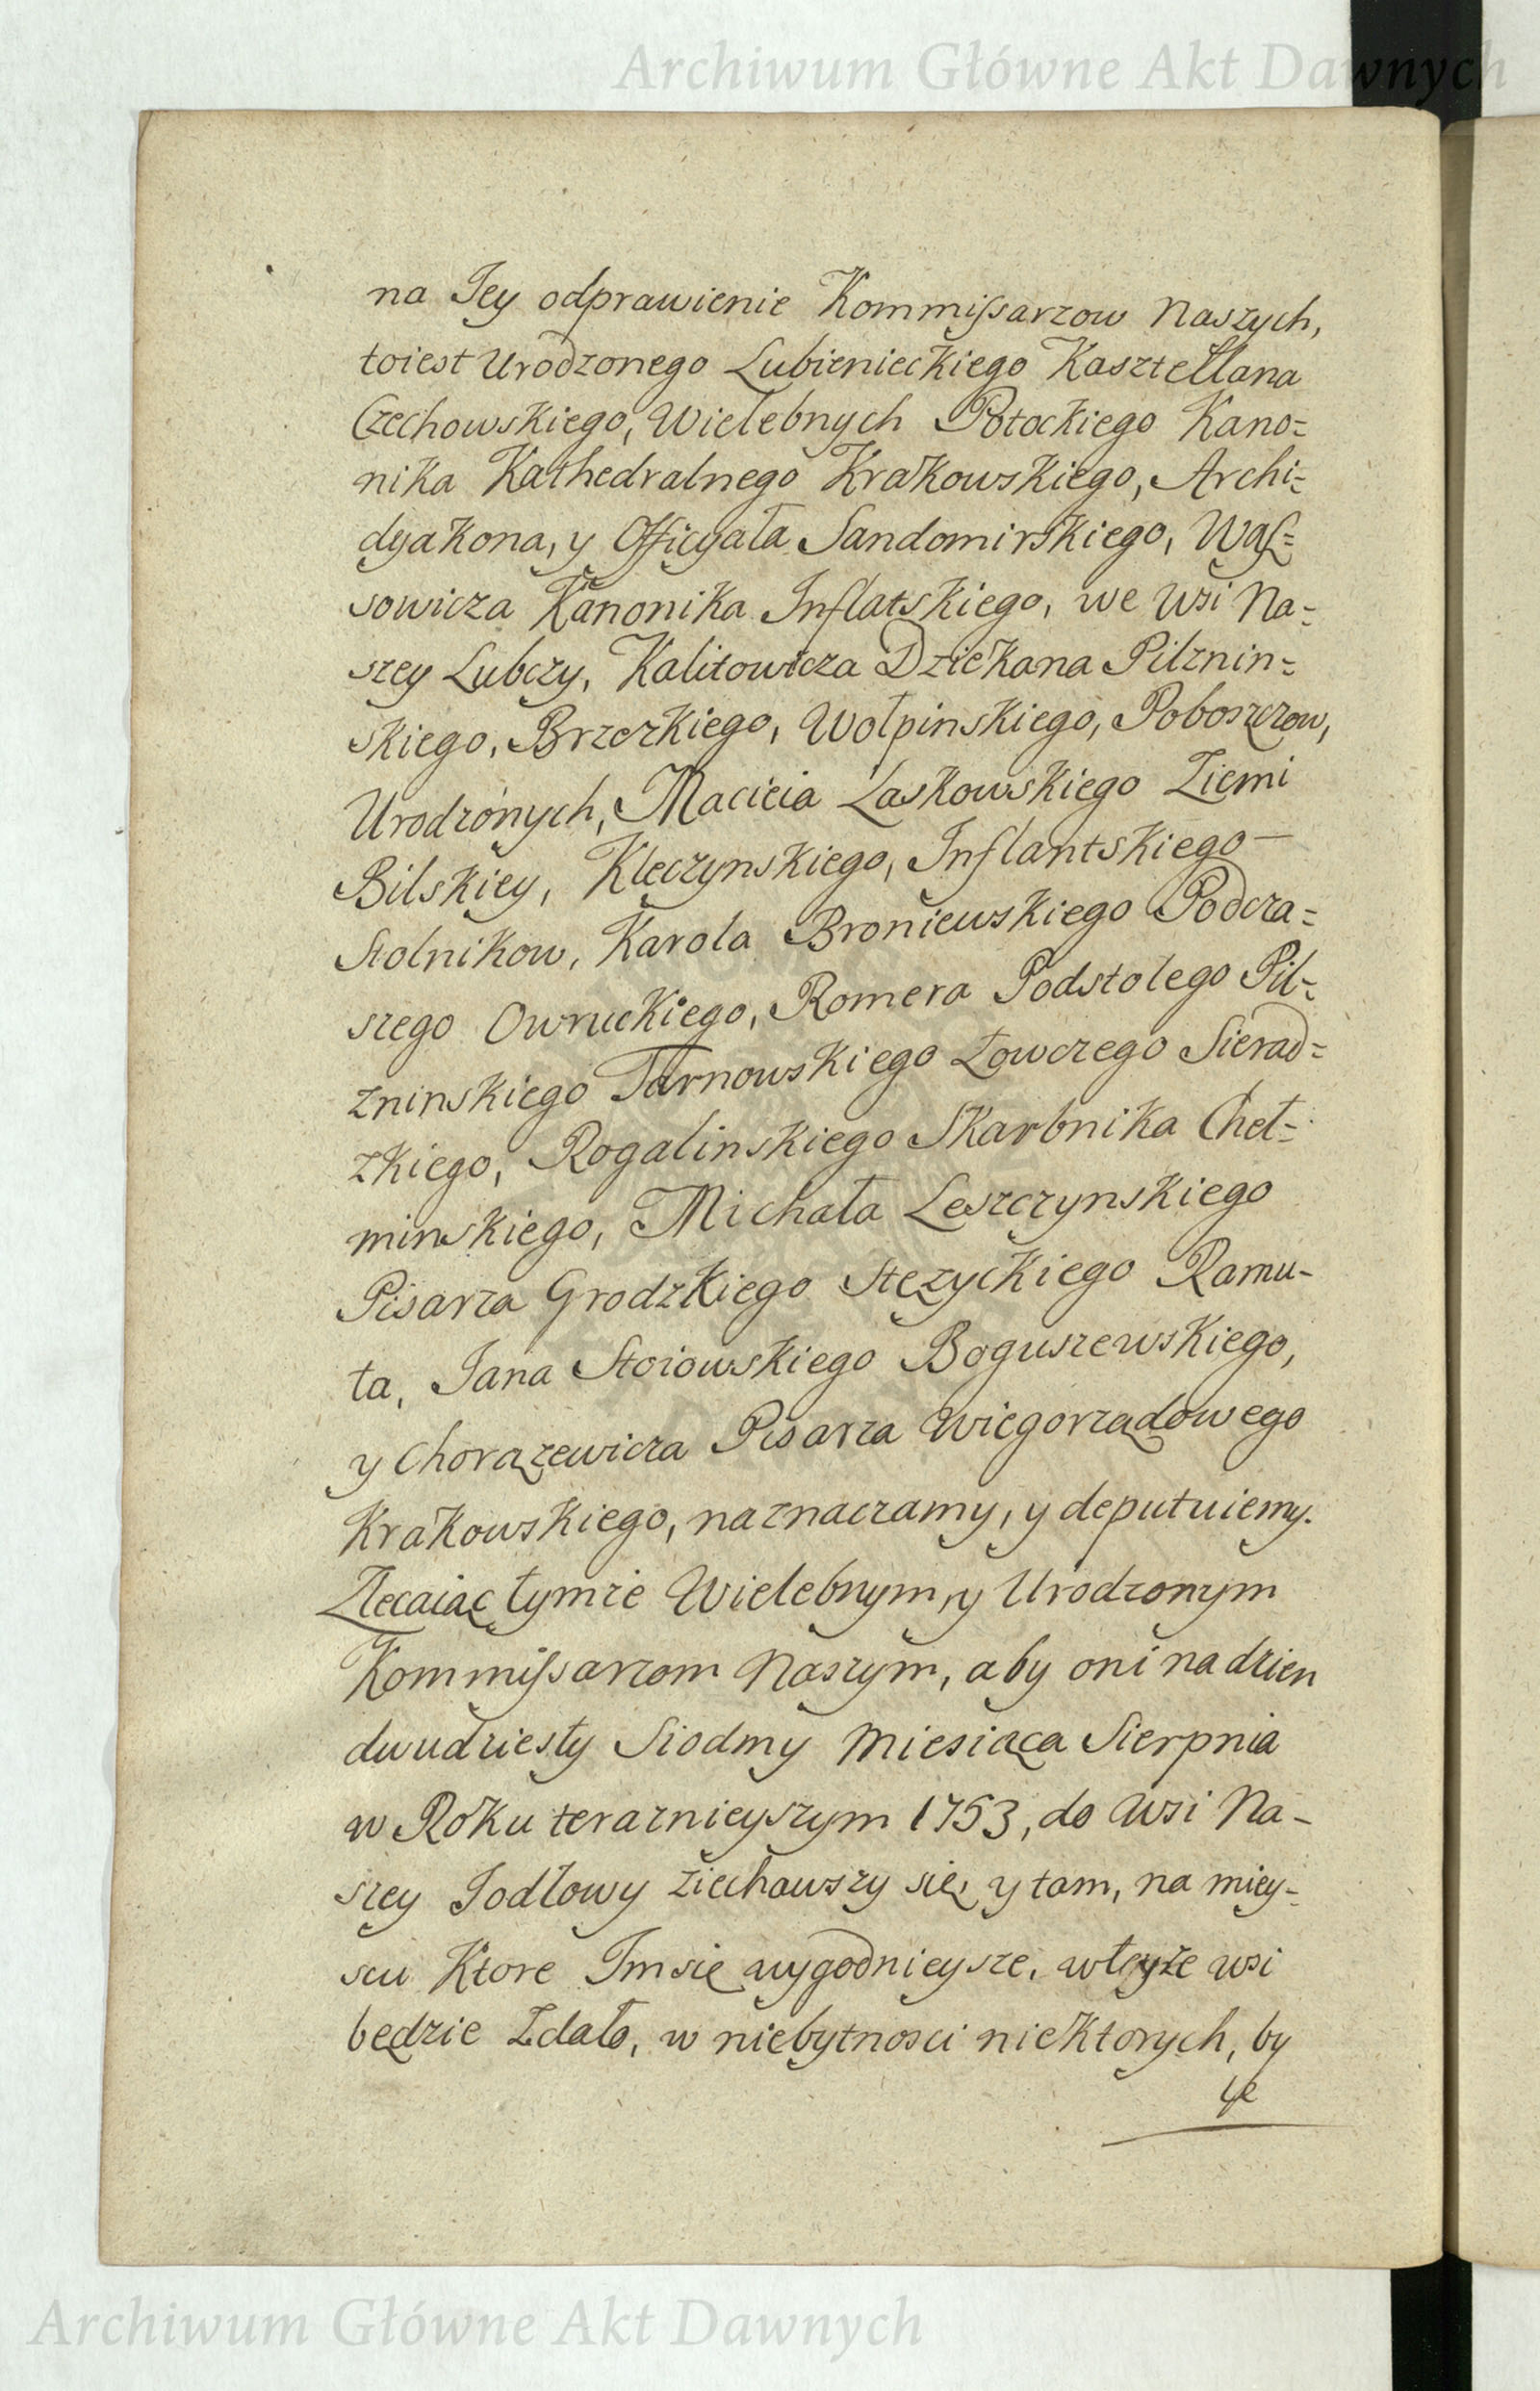 Archiwum Główne Akt Dawnych
na Jey odprawienie Kommißarzow Naszych,
toiest Urodzonego Lubienieckiego Kasztellana
Czechowskiego, Wielebnych Potockiego Kano=
nika Kathedralnego Krakowskiego, Archi=
dyakona, y Officyała Sandomirskiego, Waſ=
sowicza Kanonika Inflatskiego, we wsi Na=
szey Lubczy, Kalitowicza Dziekana Pilznin=
skiego, Brzezkiego, Wołpinskiego, Poboszczow,
Urodzonych, Macieia Laskowskiego Ziemi
Bilskiey, Kleczynskiego, Inflantskiego —
Stolnikow, Karola Broniewskiego Podcza=
szego Owruckiego, Romera Podstolego Pil=
zninskiego Tarnowskiego Łowczego Sierad=
zkiego, Rogalinskiego Skarbnika Cheł=
minskiego, Michała Leszczynskiego
Pisarza Grodzkiego Stęzyckiego Ramu-
ta, Jana Stoiowskiego Boguszewskiego,
y Chorązewicza Pisarza Wiegorządowego
Krakowskiego, naznaczamy, y deputuiemy.
Zlecaiąc tymze Wielebnym, y Urodzonym
Kommißarzom Naszym, aby oni na dzien
dwudziesty Siodmy Miesiąca Sierpnia
w Roku teraznieyszym 1753, do Wsi Na-
szey Jodłowy ziechawszy się, y tam, na miey-
scu Ktore Im się wygodnieysze, wteyże wsi
będzie Zdało, w niebytnosci niektorych, by
łe
Archiwum Główne Akt Dawnych